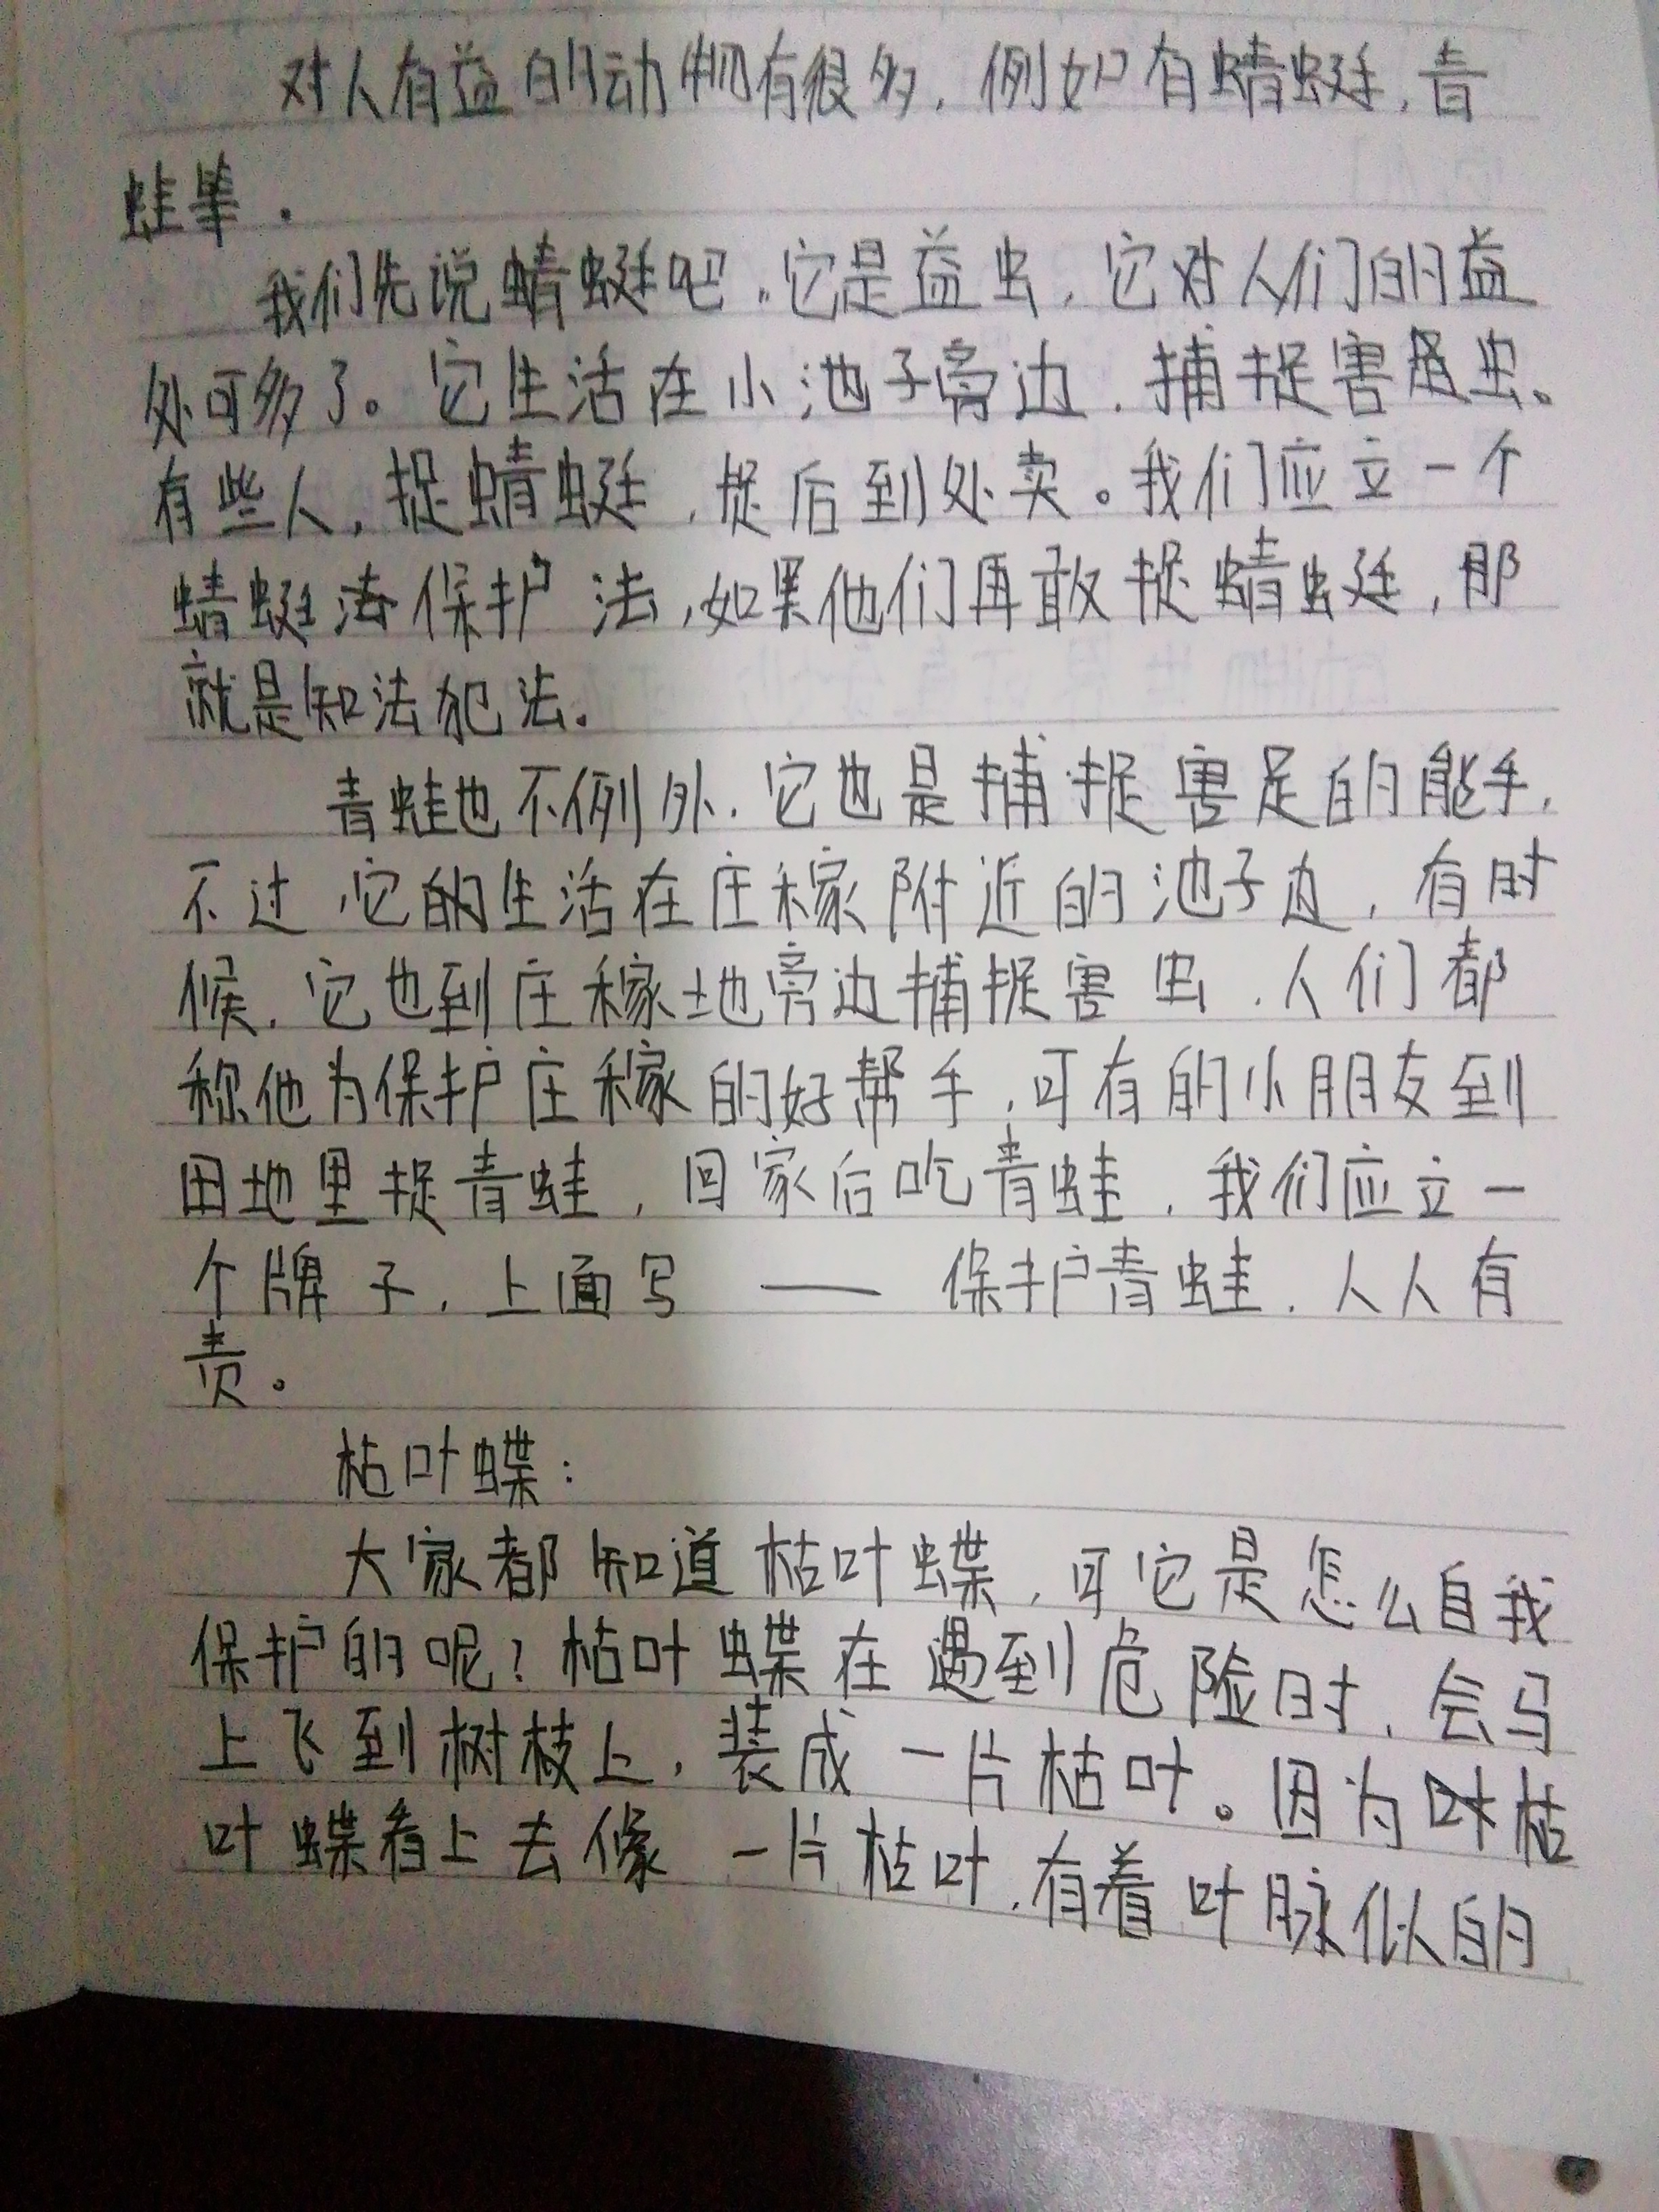 对人有益的动物有很多，例如有蜻蜓，青
蛙等．
我们先说蜻蜓吧，它是益虫，它对人们的益
处可多了。它生活在小池子旁边，捕捉害虫。
有些人，捉蜻蜓，捉后到处卖。我们应立一个
蜻蜓法保护法，如果他们再敢捉蜻蜓，那
就是知法犯法。
青蛙也不例外，它也是捕捉害足的能手，
不过，它的生活在庄稼附近的池子边，有时
候，它也到庄稼地旁边捕捉害虫，人们都
称他为保护庄稼的好帮手，可有的小朋友到
田地里捉青蛙，回家后吃青蛙，我们应立一
个牌子，上面写——保护青蛙，人人有
责。
枯叶蝶：
大家都知道枯叶蝶，可它是怎么自我
保护的呢？枯叶蝶在遇到危险时，会马
上飞到树枝上，装成一片枯叶。因为枯
叶蝶看上去像一片枯叶，有着叶脉似的